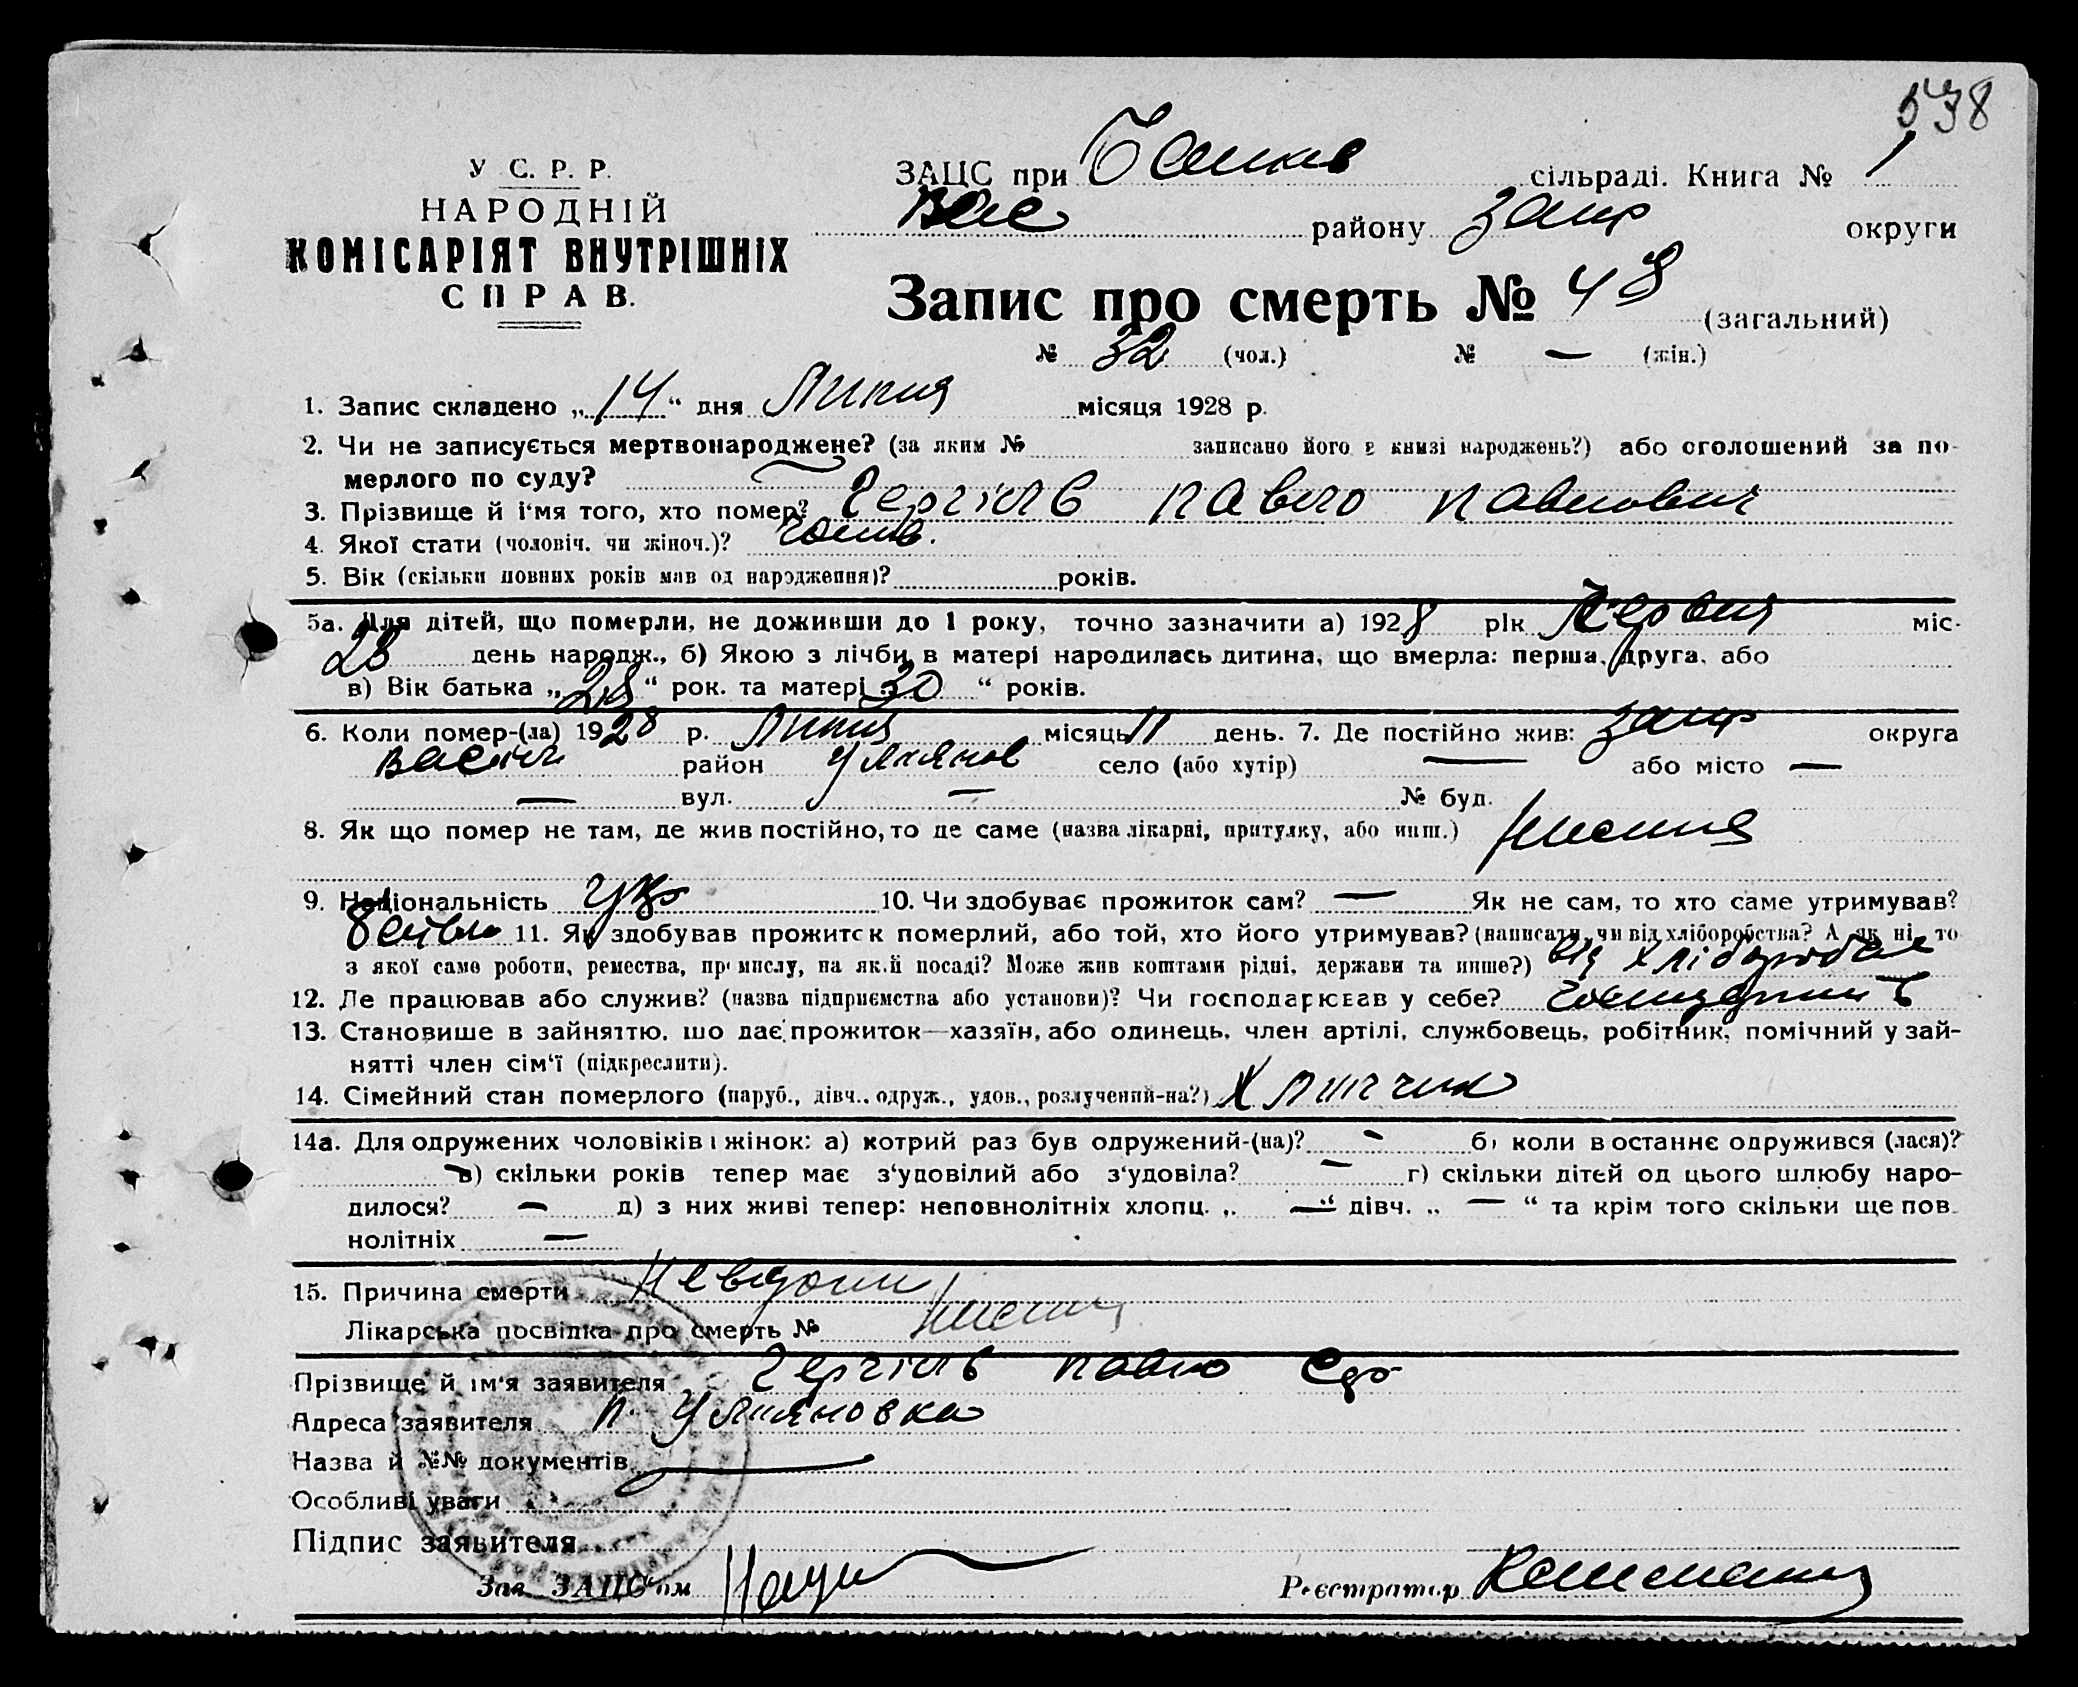 538
У С. Р. Р.
НАРОДНІЙ
КОМІСАРІЯТ ВНУТРІШНІХ
СПРАВ.
ЗАЦС при сільраді. Книга № 1
Вас району Запор округи
Запис про смерть № 48 (загальний)
№ 32 (чол.) № — (жін.)
1. Запис складено „14“ дня Липня місяця 1928 р.
2. Чи не записується мертвонароджене? (за яким № записано його в книзі народжень?) або оголошений за по-
мерлого по суду?
3. Прізвище й і'мя того, хто помер? Чергіль Павло Павлович
4. Якої стати (чоловіч. чи жіноч.)?
5. Вік (скільки повних років мав од народження)? років.
5а. Для дітей, що померли, не доживши до 1 року, точно зазначити а) 1928 рік Червня міс-
23 день народж., б) Якою з лічби в матері народилась дитина, що вмерла: перша, друга, або
в) Вік батька „28“ рок. та матері „30“ років.
6. Коли помер-(ла) 1928 р. Липня місяць 11 день. 7. Де постійно жив: Запор округа
Васил район Улянов село (або хутір) — або місто —
— вул. — № буд.
8. Як що помер не там, де жив постійно, то де саме (назва лікарні, притулку, або инш.)
9. Національність Укр 10. Чи здобуває прожиток сам? — Як не сам, то хто саме утримував?
11. Як здобував прожиток померлий, або той, хто його утримував? (написати, чи від хліборобства? А як ні, то
з якої само роботи, ремества, промислу, на якій посаді? Може жив коштами рідні, держави та инше?) від хліборобства
12. Де працював або служив? (назва підприємства або установи)? Чи господарював у себе?
13. Становище в зайняттю, що дає прожиток—хазяїн, або одинець, член артілі, службовець, робітник, помічний у зай-
нятті член сім'ї (підкреслити).
14. Сімейний стан померлого (паруб., дівч., одруж., удов., розлучений-на?) Хлопчик
14а. Для одружених чоловіків і жінок: а) котрий раз був одружений-(на)? - б) коли востаннє одружився (лася)?
в) скільки років тепер має з'удовілий або з'удовіла? — г) скільки дітей од цього шлюбу наро-
дилося? — д) з них живі тепер: неповнолітніх хлопц. „—“ дівч. „—“ та крім того скільки ще пов-
нолітніх —
15. Причина смерти Невідоми
Лікарська посвідка про смерть №
Прізвище й ім'я заявителя Чергіль Павло
Адреса заявителя п. Уляновка
Назва й №№ документів —
Особливі уваги
Підпис заявителя
Зав. ЗАЦС'ом
Реєстратор